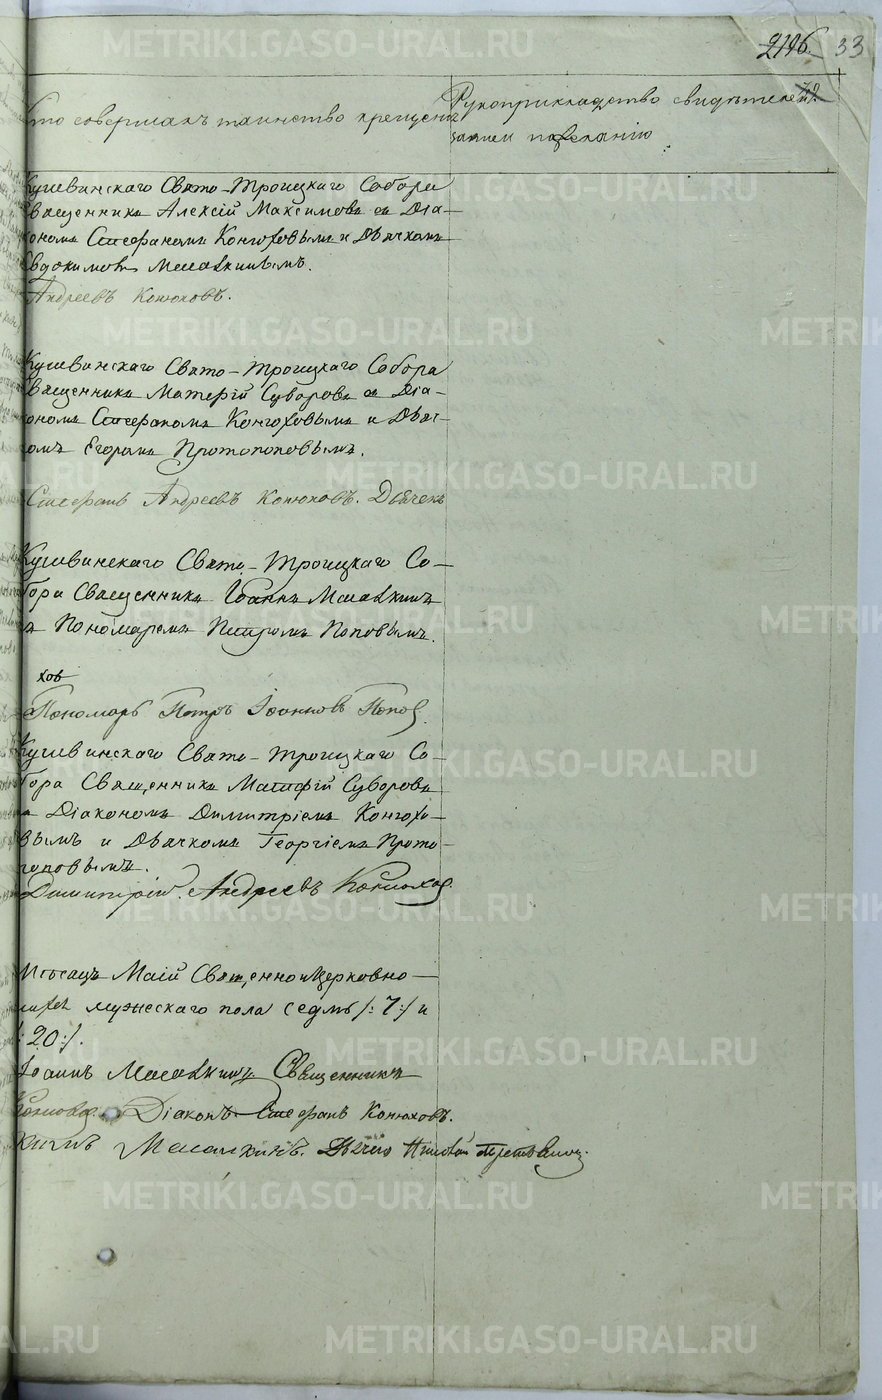 2116. 33
Кто совершалъ таинство крещенія
Рукоприкладство свидѣтелей
записи по желанію
Кушвинскаго Свято-Троицкаго Собора
Священникъ Алексій Максимовъ съ Діа-
кономъ Стефаномъ Конюховымъ и Дьячкомъ
Масалкинымъ.
Андреевъ Конюховъ.
Кушвинскаго Свято-Троицкаго Собора
Священникъ Матфій Суворовъ съ Діа-
кономъ Стефаномъ Конюховымъ и Дьяч-
комъ Егоромъ Протопоповымъ.
Стефанъ Андреевъ Конюховъ. Дьячекъ
Кушвинскаго Свято-Троицкаго Со-
бора Священникъ Іоаннъ Масалкинъ
съ Пономаремъ Петромъ Поповымъ.
хов
Пономарь Петръ Іоанновъ Попов.
Кушвинскаго Свято-Троицкаго Со-
бора Священникъ Матфій Суворовъ
съ Діакономъ Димитріемъ Конюхо-
вымъ и Дьячкомъ Георгіемъ Прото-
поповымъ.
Димитрій Андреевъ Конюхов
Мѣсяцъ Маій Священноцерковно-
мужескаго пола седмь /: 7 :/ и
/: 20 :/.
Іоаннъ Масалкинъ Священникъ
Діаконъ Стефанъ Конюховъ.
Масалкинъ.
METRIKI.GASO-URAL.RU